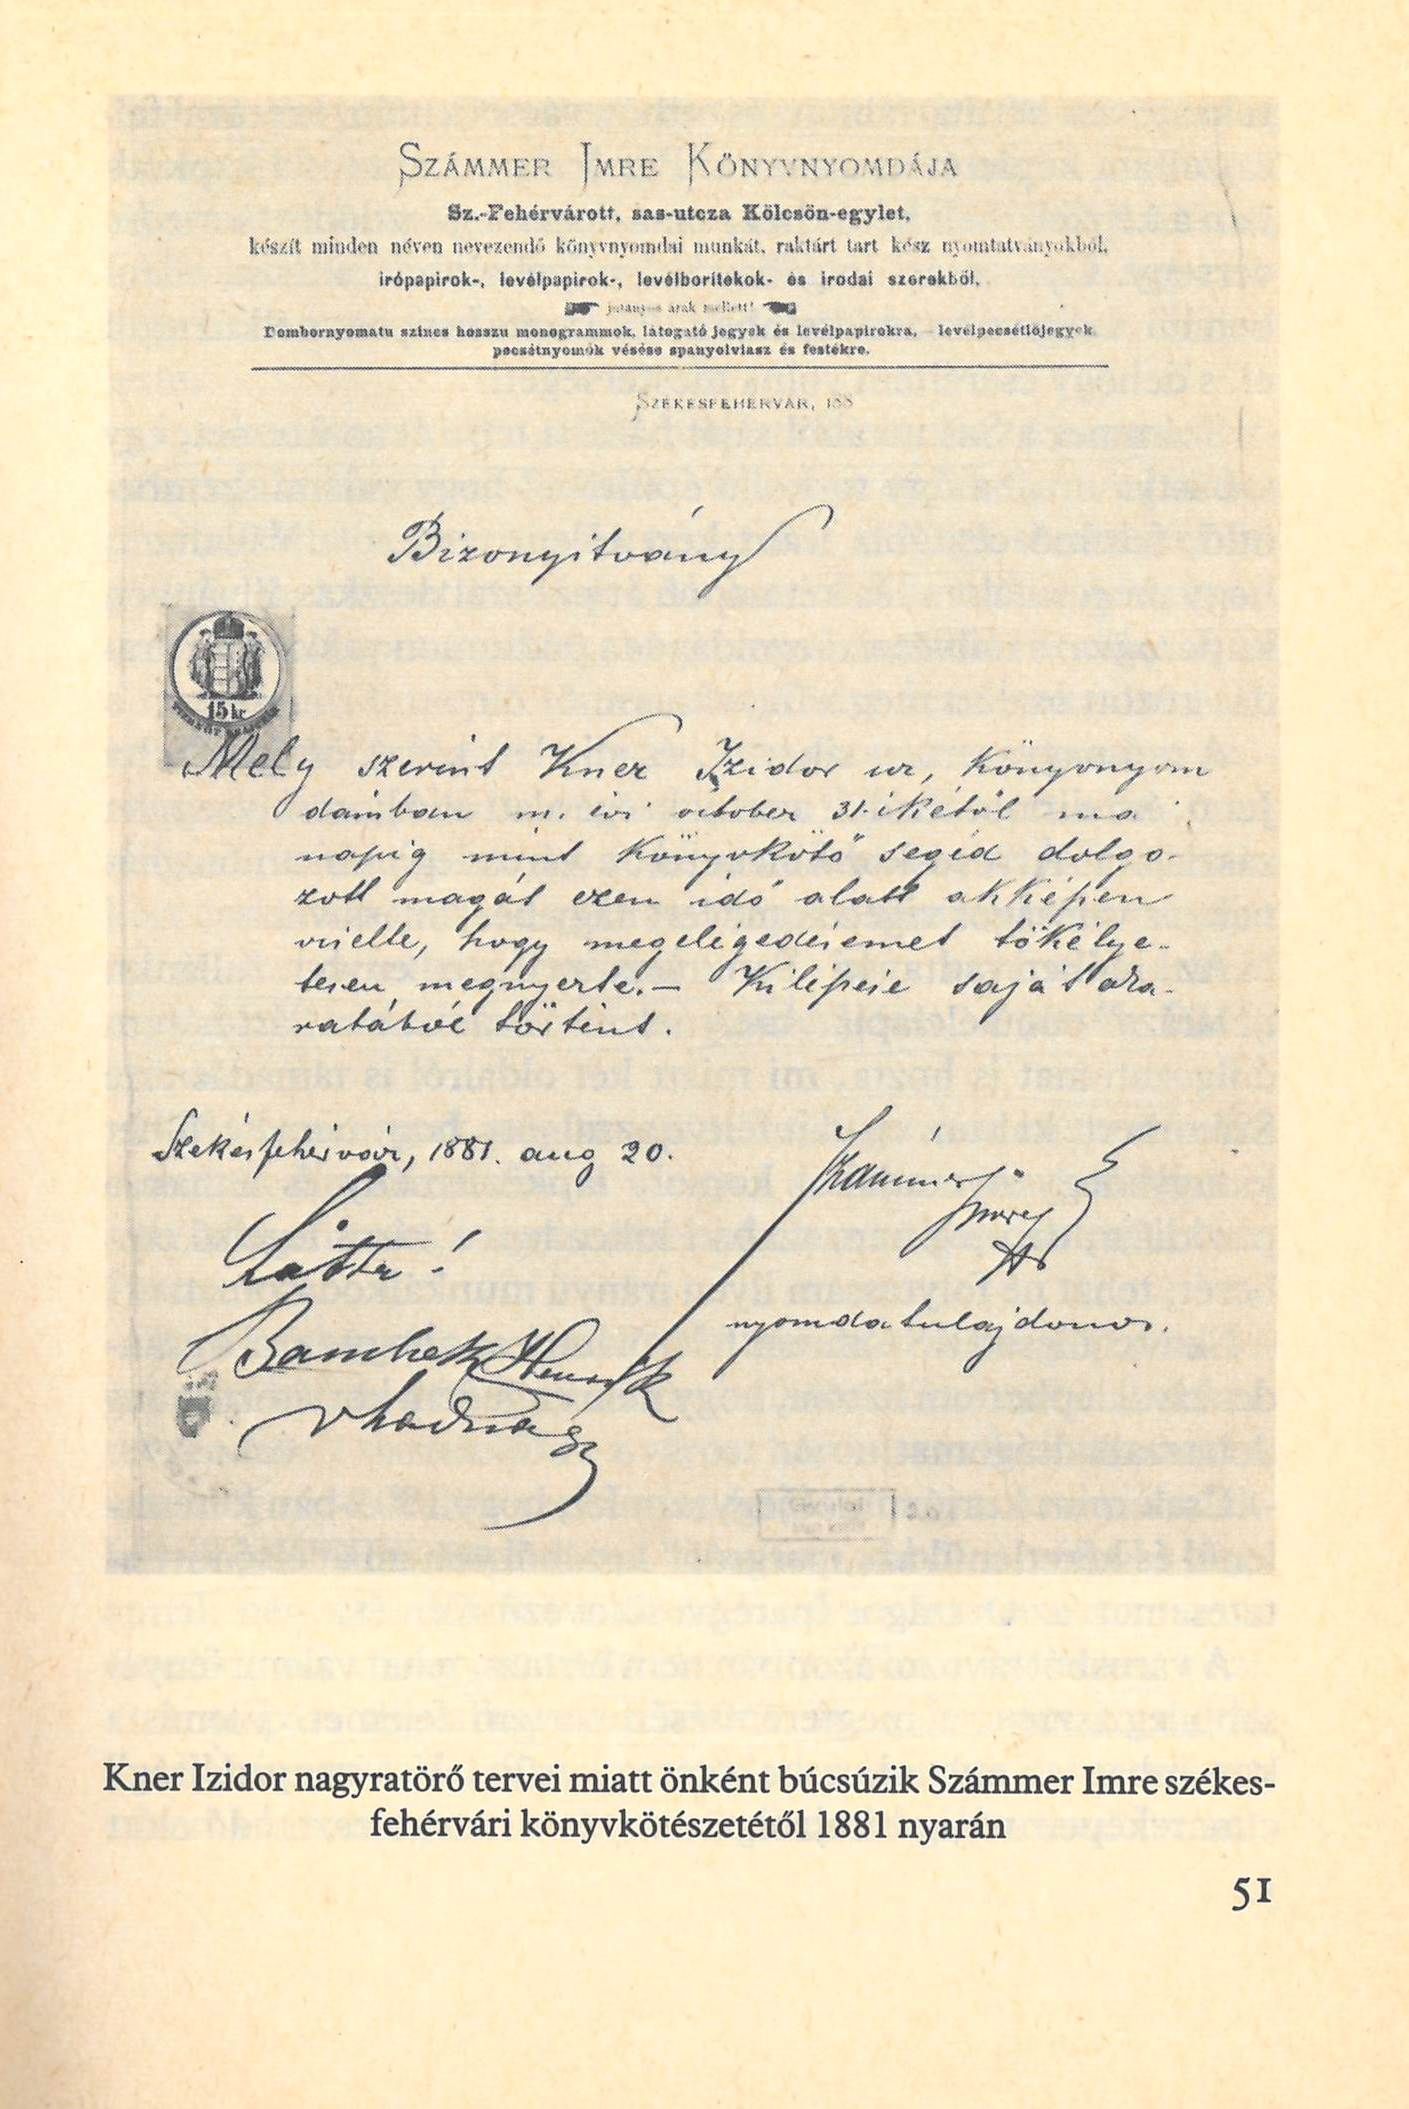 SZÁMMER IMRE KÖNYVNYOMDÁJA
Sz.-Fehérvárott, sas-utcza Kölcsön-egylet,
készít minden néven nevezendő könyvnyomdai munkát, raktárt tart kész nyomtatványokból,
irópapirok-, levélpapirok-, levélboritekok- és irodai szerekből,
jutányos árak mellett!
Dombornyomatu szines hosszu monogrammok, látogató jegyek és levélpapirokra, levélpecsétlőjegyek
pecsétnyomók vésése spanyolviasz és festékre.
SZÉKESFEHÉRVÁR, 188
Bizonyitvány
15 kr
Mely szerint Kner Izidor ur, könyvnyom
dámban m. évi october 31-ikétől ma
napig mint könyvkötő segéd dolgo-
zott magát ezen idő alatt akképen
viselte, hogy megelégedésemet tökélye-
tesen megnyerte. — Kilépése saját aka-
ratából történt.
Székesfehérvár, 1881. aug 20.
Számmer
Imre
nyomdatulajdonos.
Látta!
Henrik
vhadnagy
Kner Izidor nagyratörő tervei miatt önként búcsúzik Számmer Imre székes-
fehérvári könyvkötészetétől 1881 nyarán
51